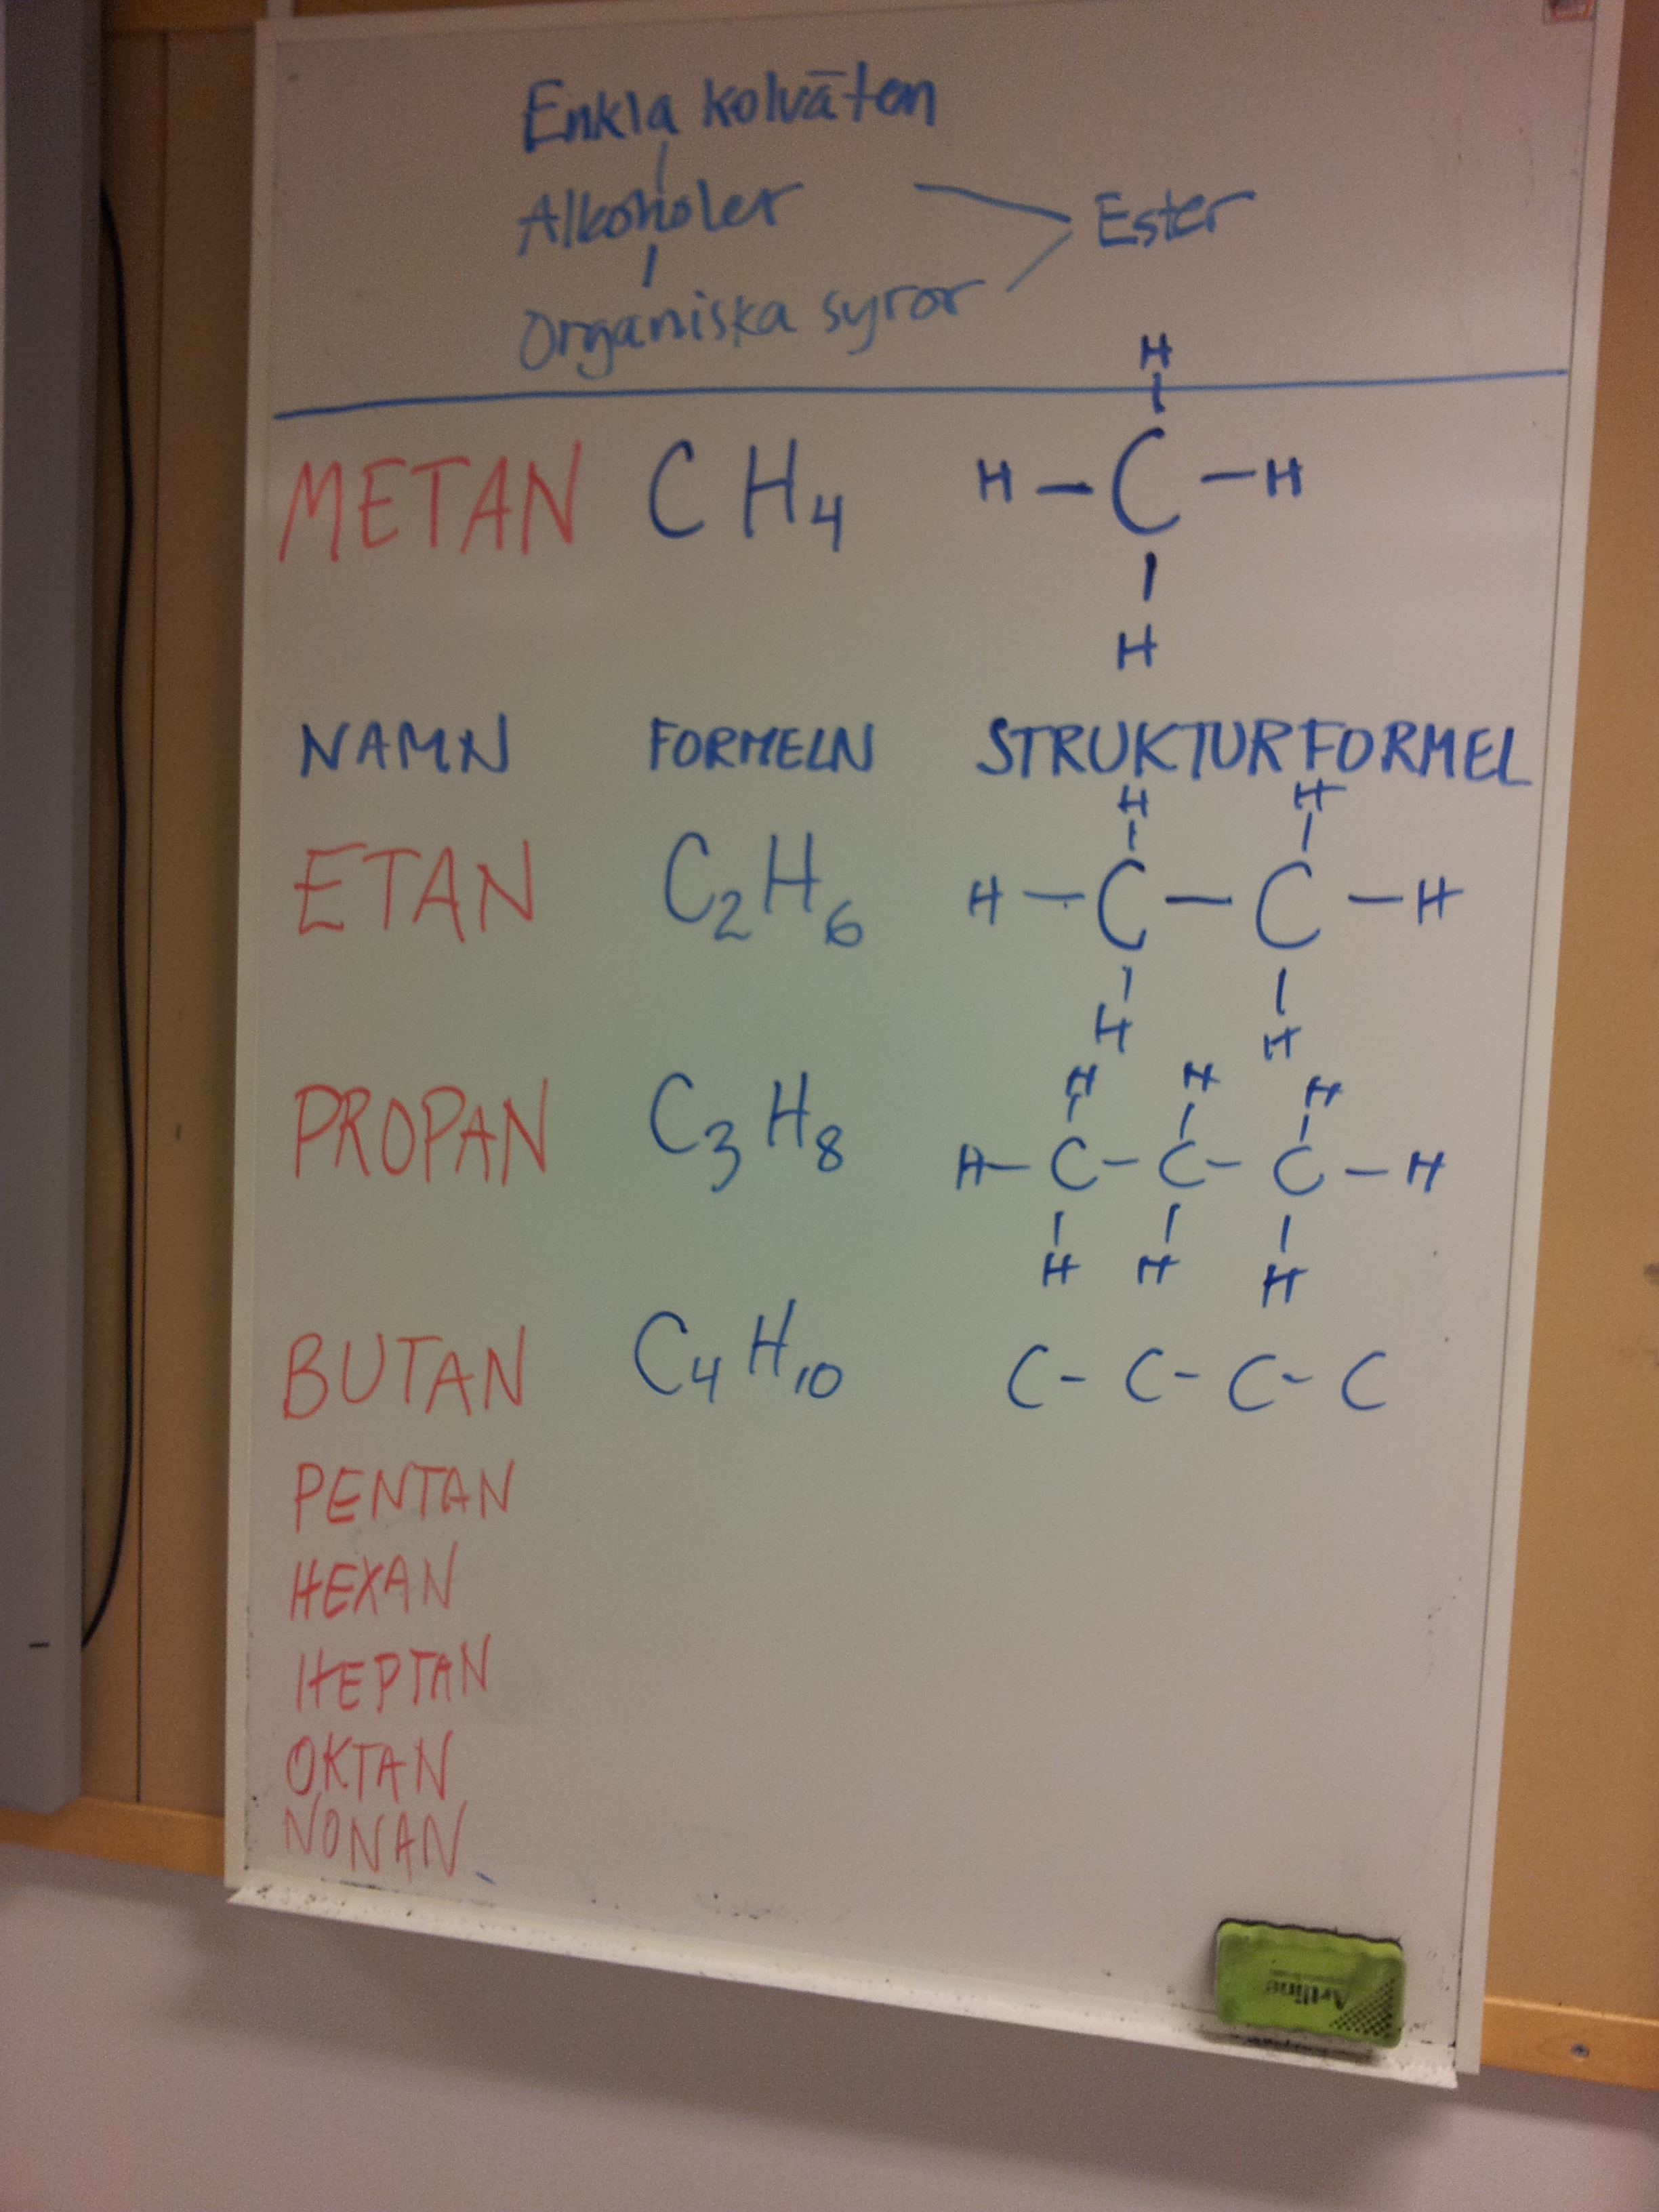 Enkla kolväten
Alkoholer
Ester
Organiska syror
H
METAN CH₄ H-C-H
H
NAMN FORMELN STRUKTURFORMEL
H H
ETAN C₂H₆ H-C-C-H
H H
H H H
PROPAN C₃H₈ H-C-C-C-H
H H H
BUTAN C₄H₁₀ C-C-C-C
PENTAN
HEXAN
HEPTAN
OKTAN
NONAN
Artline